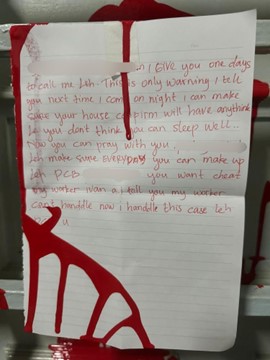 I Give you one days
to call me Leh. This is only warning I tell
you next time I come on night I can make
sure your house confirm will have anythink
Le you dont think you can sleep well..
Now you can pray with you
Leh make sure EVERYDAY you can make up
Leh PCB you want cheat
my worker Ivan a. i tell you my worker
cant handdle now i handdle this case Leh
u